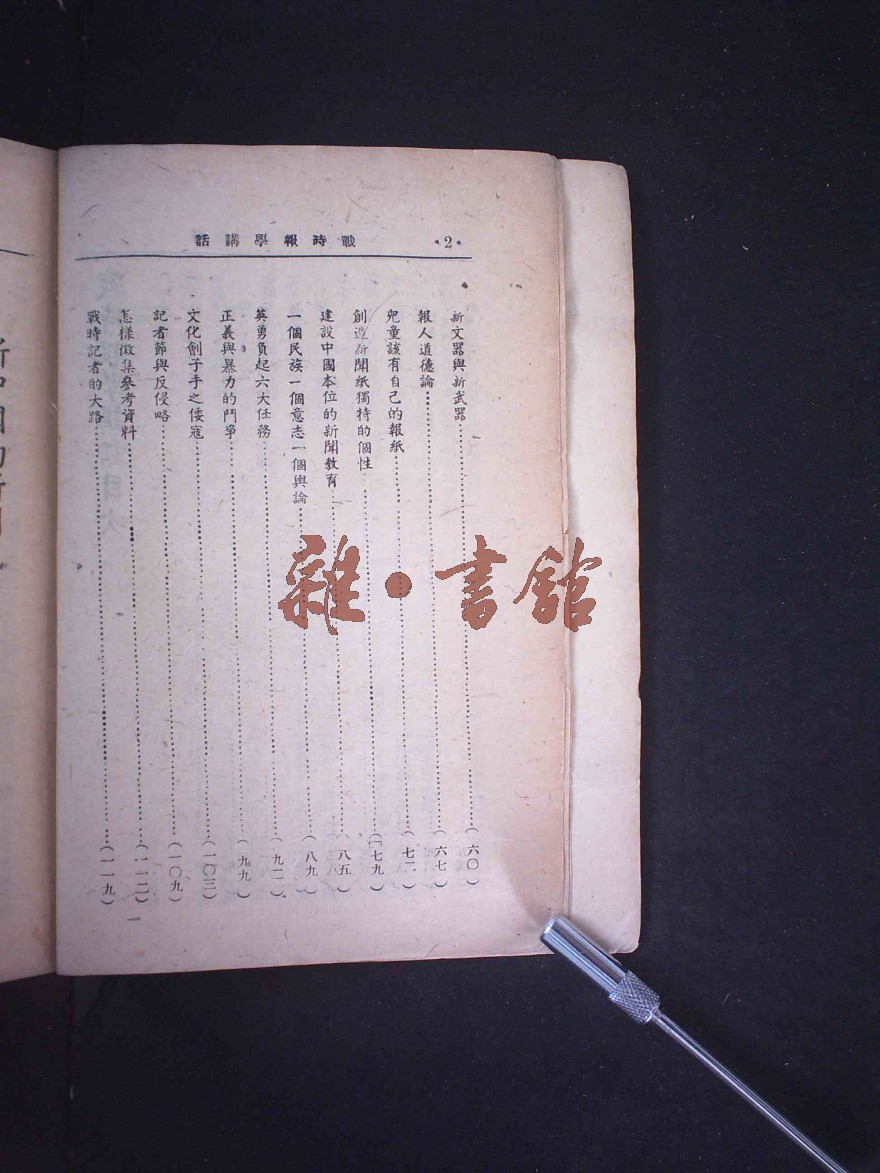 ·2· 戰時報學講話
新文器與新武器……(六〇)
報人道德論……(六七)
兒童該有自己的報紙……(七二)
創造新聞紙獨特的個性……(七九)
建設中國本位的新聞教育……(八五)
一個民族一個意志一個輿論……(八九)
英勇負起六大任務……(九二)
正義與暴力的鬥爭……(九九)
文化劊子手之倭寇……(一〇三)
記者節與反侵略……(一〇九)
怎樣徵集參考資料……(一一二)
戰時記者的大路……(一一九)
雜·書館